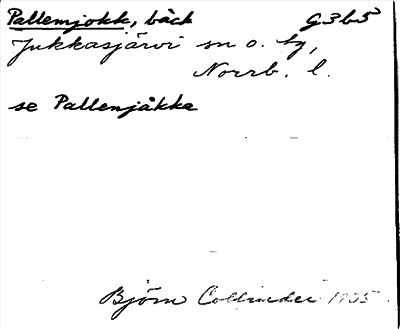 Pallemjokk, bäck G3b5
Jukkasjärvi sn o. tg,
Norrb. l.
se Pallenjåkka
Björn Collinder 1935